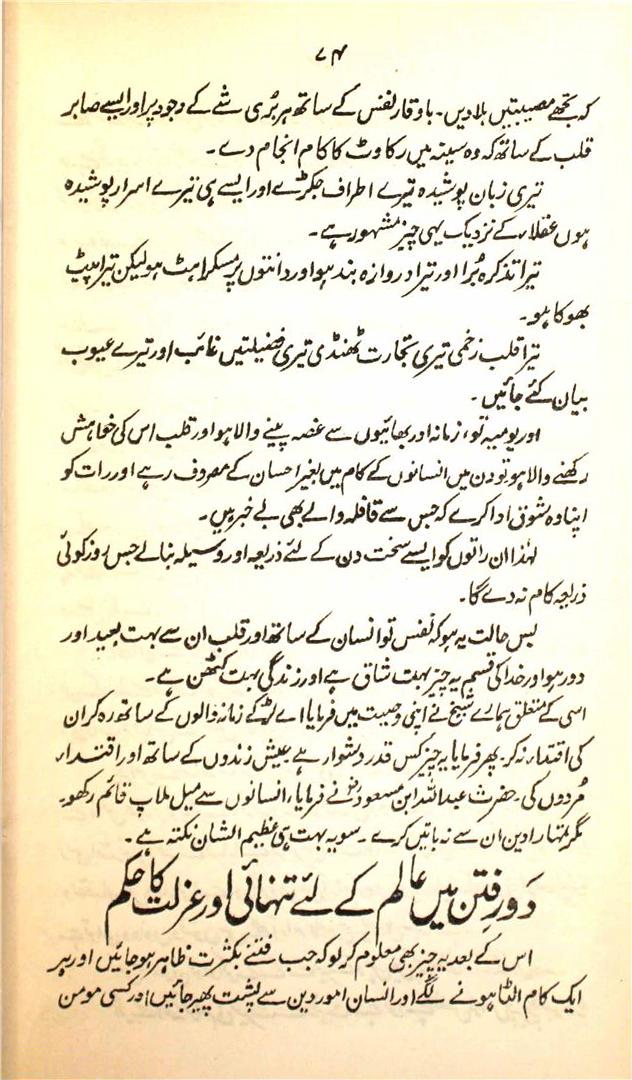 ۷۴
کہ تجھے مصیبتیں ہلا دیں۔ باوقار نفس کے ساتھ ہر بُری شے کے وجود پر اور ایسے صابر
قلب کے ساتھ کہ وہ سینہ میں رکاوٹ کا کام انجام دے۔
تیری زبان پوشیدہ تیرے اطراف جکڑے اور ایسے ہی تیرے اسرار پوشیدہ
ہوں عقلاء کے نزدیک یہی چیز مشہور ہے۔
تیرا تذکرہ بُرا اور تیرا دروازہ بند ہو اور دانتوں پر مسکراہٹ ہو لیکن تیرا پیٹ
بھوکا ہو۔
تیرا قلب زخمی تیری تجارت ٹھنڈی تیری فضیلتیں غائب اور تیرے عیوب
بیان کئے جائیں۔
اور یومیہ تو، زمانہ اور بھائیوں سے غصہ پینے والا ہو اور قلب اس کی خواہش
رکھنے والا ہو تو دن میں انسانوں کے کام میں بغیر احسان کے مصروف رہے اور رات کو
اپنا وہ شوق ادا کرے کہ جس سے قافلہ والے بھی بے خبر ہیں۔
لہٰذا ان راتوں کو ایسے سخت دن کے لئے ذریعہ اور وسیلہ بنالے جس روز کوئی
ذریعہ کام نہ دے گا۔
بس حالت یہ ہو کہ نفس تو انسان کے ساتھ اور قلب ان سے بہت بعید اور
دور ہو اور خدا کی قسم یہ چیز بہت شاق ہے اور زندگی بہت کٹھن ہے۔
اسی کے متعلق ہمارے شیخ نے اپنی وصیت میں فرمایا اے لڑکے زمانہ والوں کے ساتھ رہ کر ان
کی اقتداء نہ کر۔ پھر فرمایا یہ چیز کس قدر دشوار ہے عیش زندوں کے ساتھ اور اقتداء
مُردوں کی۔ حضرت عبداللہ ابن مسعودؓ نے فرمایا، انسانوں سے میل ملاپ قائم رکھو۔
مگر تمہارا دین ان سے نہ باتیں کرے۔ سو یہ بہت ہی عظیم الشان نکتہ ہے۔
دَورِ فِتن میں عالم کے لئے تنہائی اور عزلت کا حکم
اس کے بعد یہ چیز بھی معلوم کر لو کہ جب فتنے بکثرت ظاہر ہو جائیں اور ہر
ایک کام الٹا ہونے لگے اور انسان امور دین سے پشت پھیر جائیں اور کسی مومن